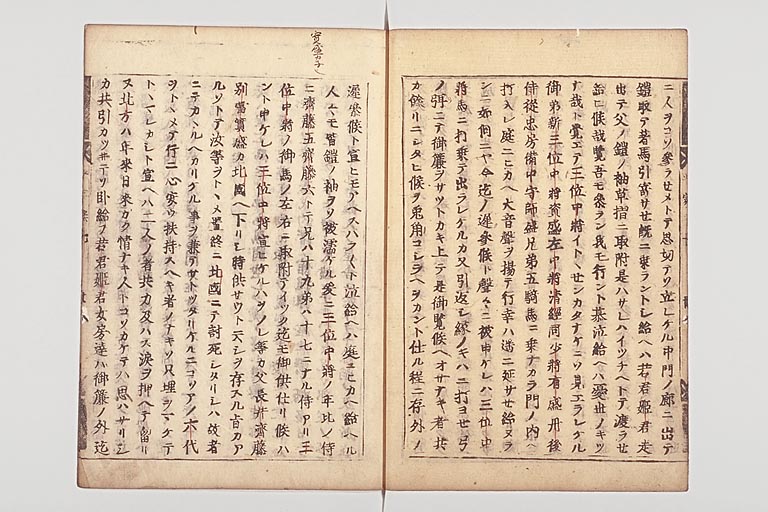 ニ人ヲコソ参ラセメトテ思切テソ立レケル中門ノ廊ニ出テ
鎧取テ着馬引寄サセ既ニ乗ラントシ給ヘハ若君姫君走
出テ父ノ鎧ノ袖草摺ニ取附是ハサレハイツチヘトテ渡ラセ
給ヒ候哉覧吾モ参ラン我モ行ント慕泣給ヘハ憂世ノキツ
ナ哉ト覚エテ三位中将イトヽセンカタナケニソ見エラレケル
御弟新三位中将資盛左中将清経同少将有盛丹後
侍従忠房備中守師盛兄弟五騎馬ニ乗ナカラ門ノ内ヘ
打入レ庭ニヒカヘ大音聲ヲ揚テ行幸ハ遥ニ延サセ給ヌラ
ンニ如何ニヤ今迄ノ遅参候ト聲々ニ被申ケレハ三位中
将馬ニ打乗テ出ラレケルカ又引返シ縁ノキハニ打ヨせ弓
ノ弭ニテ御簾ヲサツトカキ上テ是御覧候ヘオサナキ者共
カ餘リニシタヒ候ヲ兎角コシラヘヲカント仕ル程ニ存外ノ
遅参候ト宣ヒモアヘスハラ〳〵ト泣給ヘハ庭ニヒカヘ給ヘル
人々モ皆鎧ノ袖ヲソ被濡ケル爰ニ三位中将ノ年比ノ侍
ニ齋藤五齋藤六トテ兄ハ十九弟ハ十七ニナル侍アリ三
位中将ノ御馬ノ左右ニ取附テイツク迄モ御供仕リ候ハ
ント申ケレハ三位中将宣ヒケルハヲノレ等カ父長井齋藤
別當實盛カ北國ヘ下リシ時供せウト云シヲ存スル旨カア
ルソトテ汝等ヲトヽメ置終ニ北國ニテ討死シタリシハ故者
ニテカヽルヘカリケル事ヲ兼テサトツタリケルニコソアノ六代
ヲトヽメテ行ニ心安ウ扶持スヘキ者ノナキソ只理ヲマケテ
トヽマレカシト宣ヘハ二人ノ者共力及ハス涙ヲ押ヘテ留リ
ヌ北方ハ年来日来カク情ナキ人トコソカケテハ思ハサリシ
カ共引カツキテソ臥給フ若君姫君女房達ハ御簾ノ外迄